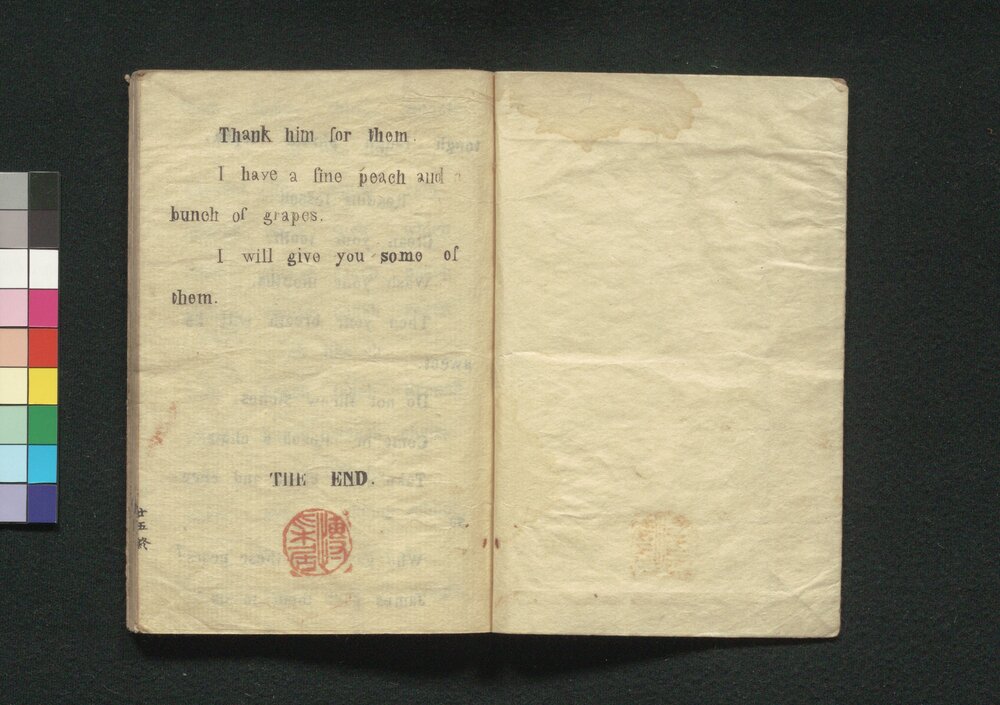 Thank him for them.
I have a fine peach and a
bunch of grapes.
I will give you some of
them.
THE END.
廿五終